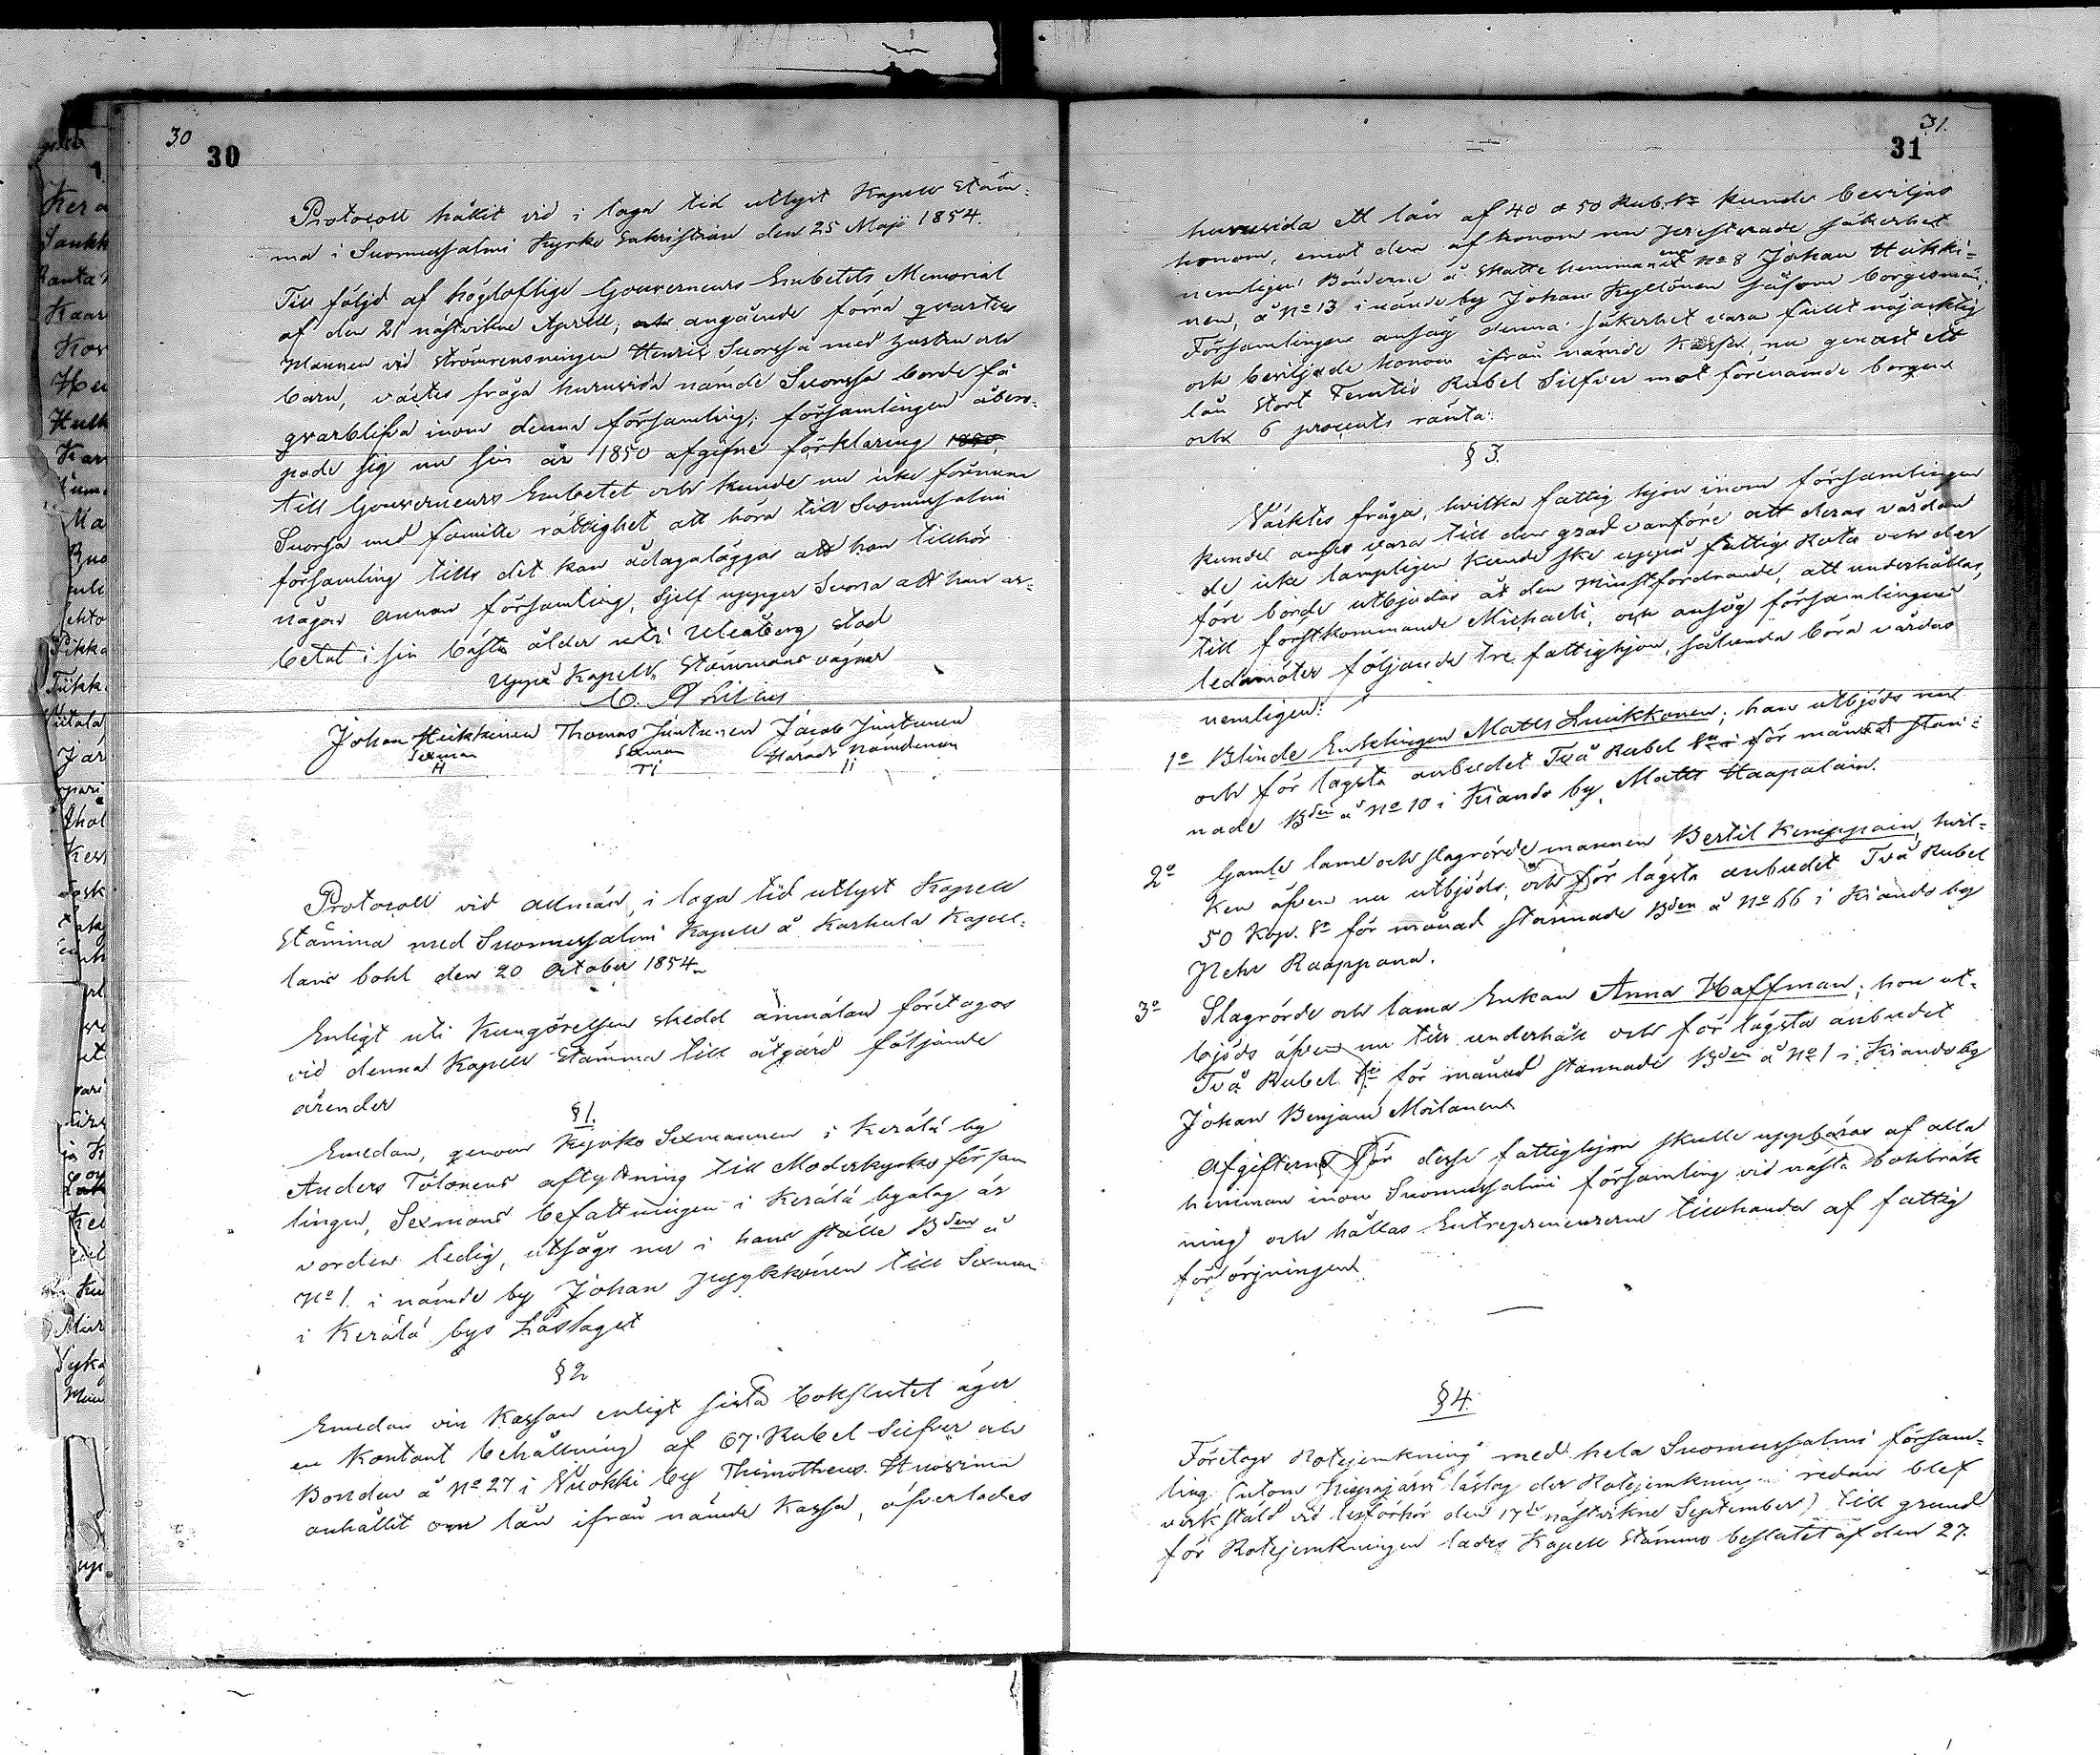 30
30
Protocoll hållit vid i laga tid utlyst Kapell Stäm-
ma i Suomussalmi Kyrko Sakristian den 25 Maji 1854.
Till följd af högloflige Gouverneurs Embetets Memorial
af den 21 nästvikne Aprill, angående förra qvarters
Mannen vid Strömrensningen Henric Suorsa med hustru och
barn, väcktes fråga huruvida nämde Suorsa borde få
qvarblifva inom denna församling; församlingen åbero-
pade sig nu sin år 1850 afgifne förklaring 1850
till Gouverneurs Embetet och kunde nu icke förunna
Suorsa med familie rättighet att höra till Suomussalmi
församling tills det kan ådagaläggas att han tillhör
någon annan församling, sjelf uppger Suorsa att han ar-
betat i sin bästa ålder uti Uleåborg stad
Uppå Kapell Stämmans vägnar
C. A Lilius
Johan Heikkinen Thomas Juntunen Jacob Juntunen
Sexman Sexman Härads Nämdeman
Protocoll vid allmän, i laga tid utlyst Kapell
Stämma med Suomussalmi Kapell å Karhula Kapel-
lans bohl den 20 October 1854
Enligt uti Kungörelsen skedd anmälan företogos
vid denna Kapell Stämma till åtgärd följande
ärender
§ 1.
Emedan, genom Kyrko Sexmannen i Kerälä by
Anders Tolonens aflyttning till Moderkyrko försam
lingen, Sexmans befattningen i Kerälä byalag är
vorden ledig, utsågs nu i hans ställe Bden å
No 1. i nämde by Johan Pyykkönen till Sexman
i Kerälä bys Läslaget
§ 2
Emedan vin Kassan enligt sista bokslutet äger
en Kontant behållning af 67 Rubel Silfver och
Bonden å No 27 i Vuokki by Thimotheus Huovinen
anhållit om lån ifrån nämde Kassa, öfverlades
31.
31
huruvida ett lån af 40 a 50 Rub. Sr kunde beviljas
honom, emot den af honom nu presterade säkerhet
nemligen Bönderne å Skatte hemmanen No 8 Johan Heikki-
nen, å No 13 i nämde by Johan Kyllönen såsom borgesmän;
Församlingen ansåg denna säkerhet vara fullt nöjaktig
och beviljade honom ifrån nämde Kassa, nu genast ett
lån stort Femtio Rubel Silfver mot förenämde borgen
och 6 procents ränta.
§ 3.
Väcktes fråga, hvilka fattighjon inom församlingen
kunde anses vara till den grad vanföre att deras vårdan
de icke lämpligen kunde ske uppå fattige Rotar och der
före borde utbjudas åt den Minstfordrande, att underhållas,
till förstkommande Michaeli, och ansåg församlingens
ledamöter följande tre fattighjon, sålunda böra vårdas
nemligen:
1o Blinde Enklingen Matts Luukkonen; han utbjöds nu
och för lägsta anbudet Två Rubel Sr i för månad stan-
nade Bden å No 10 i Kiando by Matts Haapalain.
2o Gamle lame och slagrörde mannen Bertil Kemppain, hvil-
ken äfven nu utbjöds, och för lägsta anbudet Två Rubel
50 Kop. Sr för månad stannade Bden å No 66 i Kiando by
Pehr Raappana.
3o Slagrörde och lama Enkan Anna Haffman; hon ut-
bjöds äfven nu till underhåll och för lägsta anbudet
Två Rubel Sr för månad stannade Bden å No 1 i Kiando by
Johan Benjam Moilanen
Afgifterne för desse fattighjon skulle uppbäras af alla
hemman inom Suomussalmi församling vid nästa bohlräk
ning och hållas Entrepreneurerne tillhanda af fattig
försörjningen
§ 4.
Företogs Rotejemkning med hela Suomussalmi försam-
ling, (utom Piispajärvi läslag der Rotejemkning redan blef
verkställd vid läsförhör den 17de nästvikne September) till grund
för Rotejemkningen lades Kapell Stämmo beslutet af den 27.